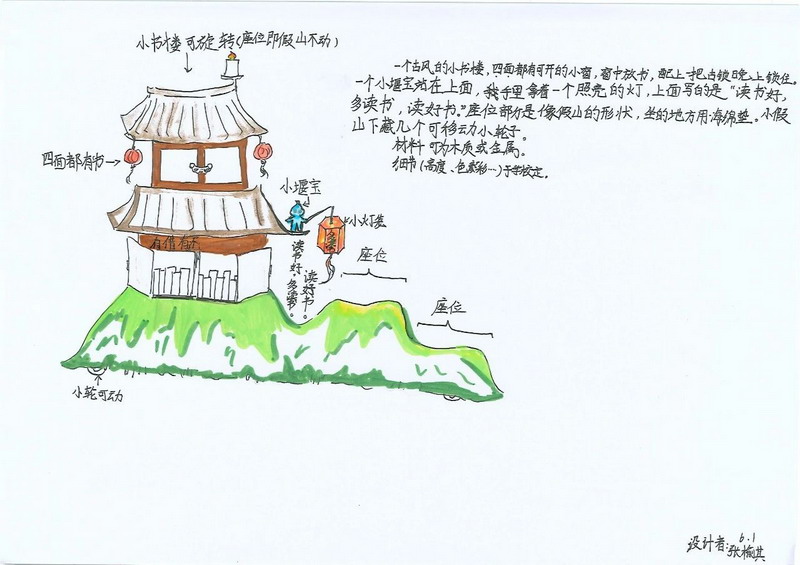 小书楼可旋转(座位即假山不动)
一个古风的小书楼,四面都有可开的小窗,窗中放书,配上一把古锁晚上锁住。
一个小堰宝站在上面,手里拿着一个照亮的灯,上面写的是"读书好,
多读书,读好书。"座位部分是像假山的形状,坐的地方用海绵垫。小假
山下藏几个可移动小轮子。
材料可为木质或金属。
细节(高度、色彩…)于学校定。
四面都有书
小堰宝
小灯笼
有借有还
读书好。多读书。
读好书。
座位
座位
小轮可动
6.1
设计者:张榆淇